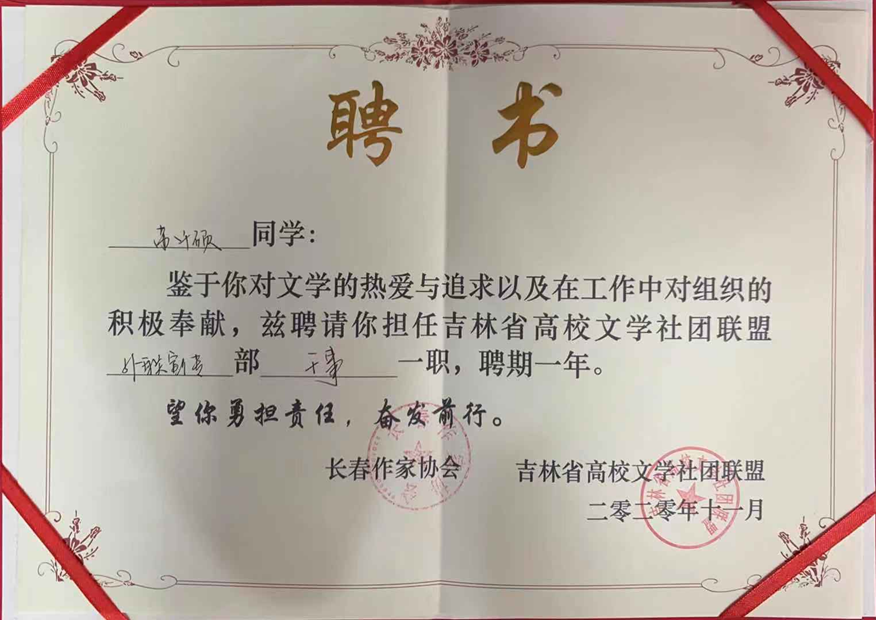 聘书
同学：
鉴于你对文学的热爱与追求以及在工作中对组织的
积极奉献，兹聘请你担任吉林省高校文学社团联盟
外联宣传部干事一职，聘期一年。
望你勇担责任，奋发前行。
长春作家协会 吉林省高校文学社团联盟
二零二零年十一月
长春作家协会
吉林省高校文学社团联盟